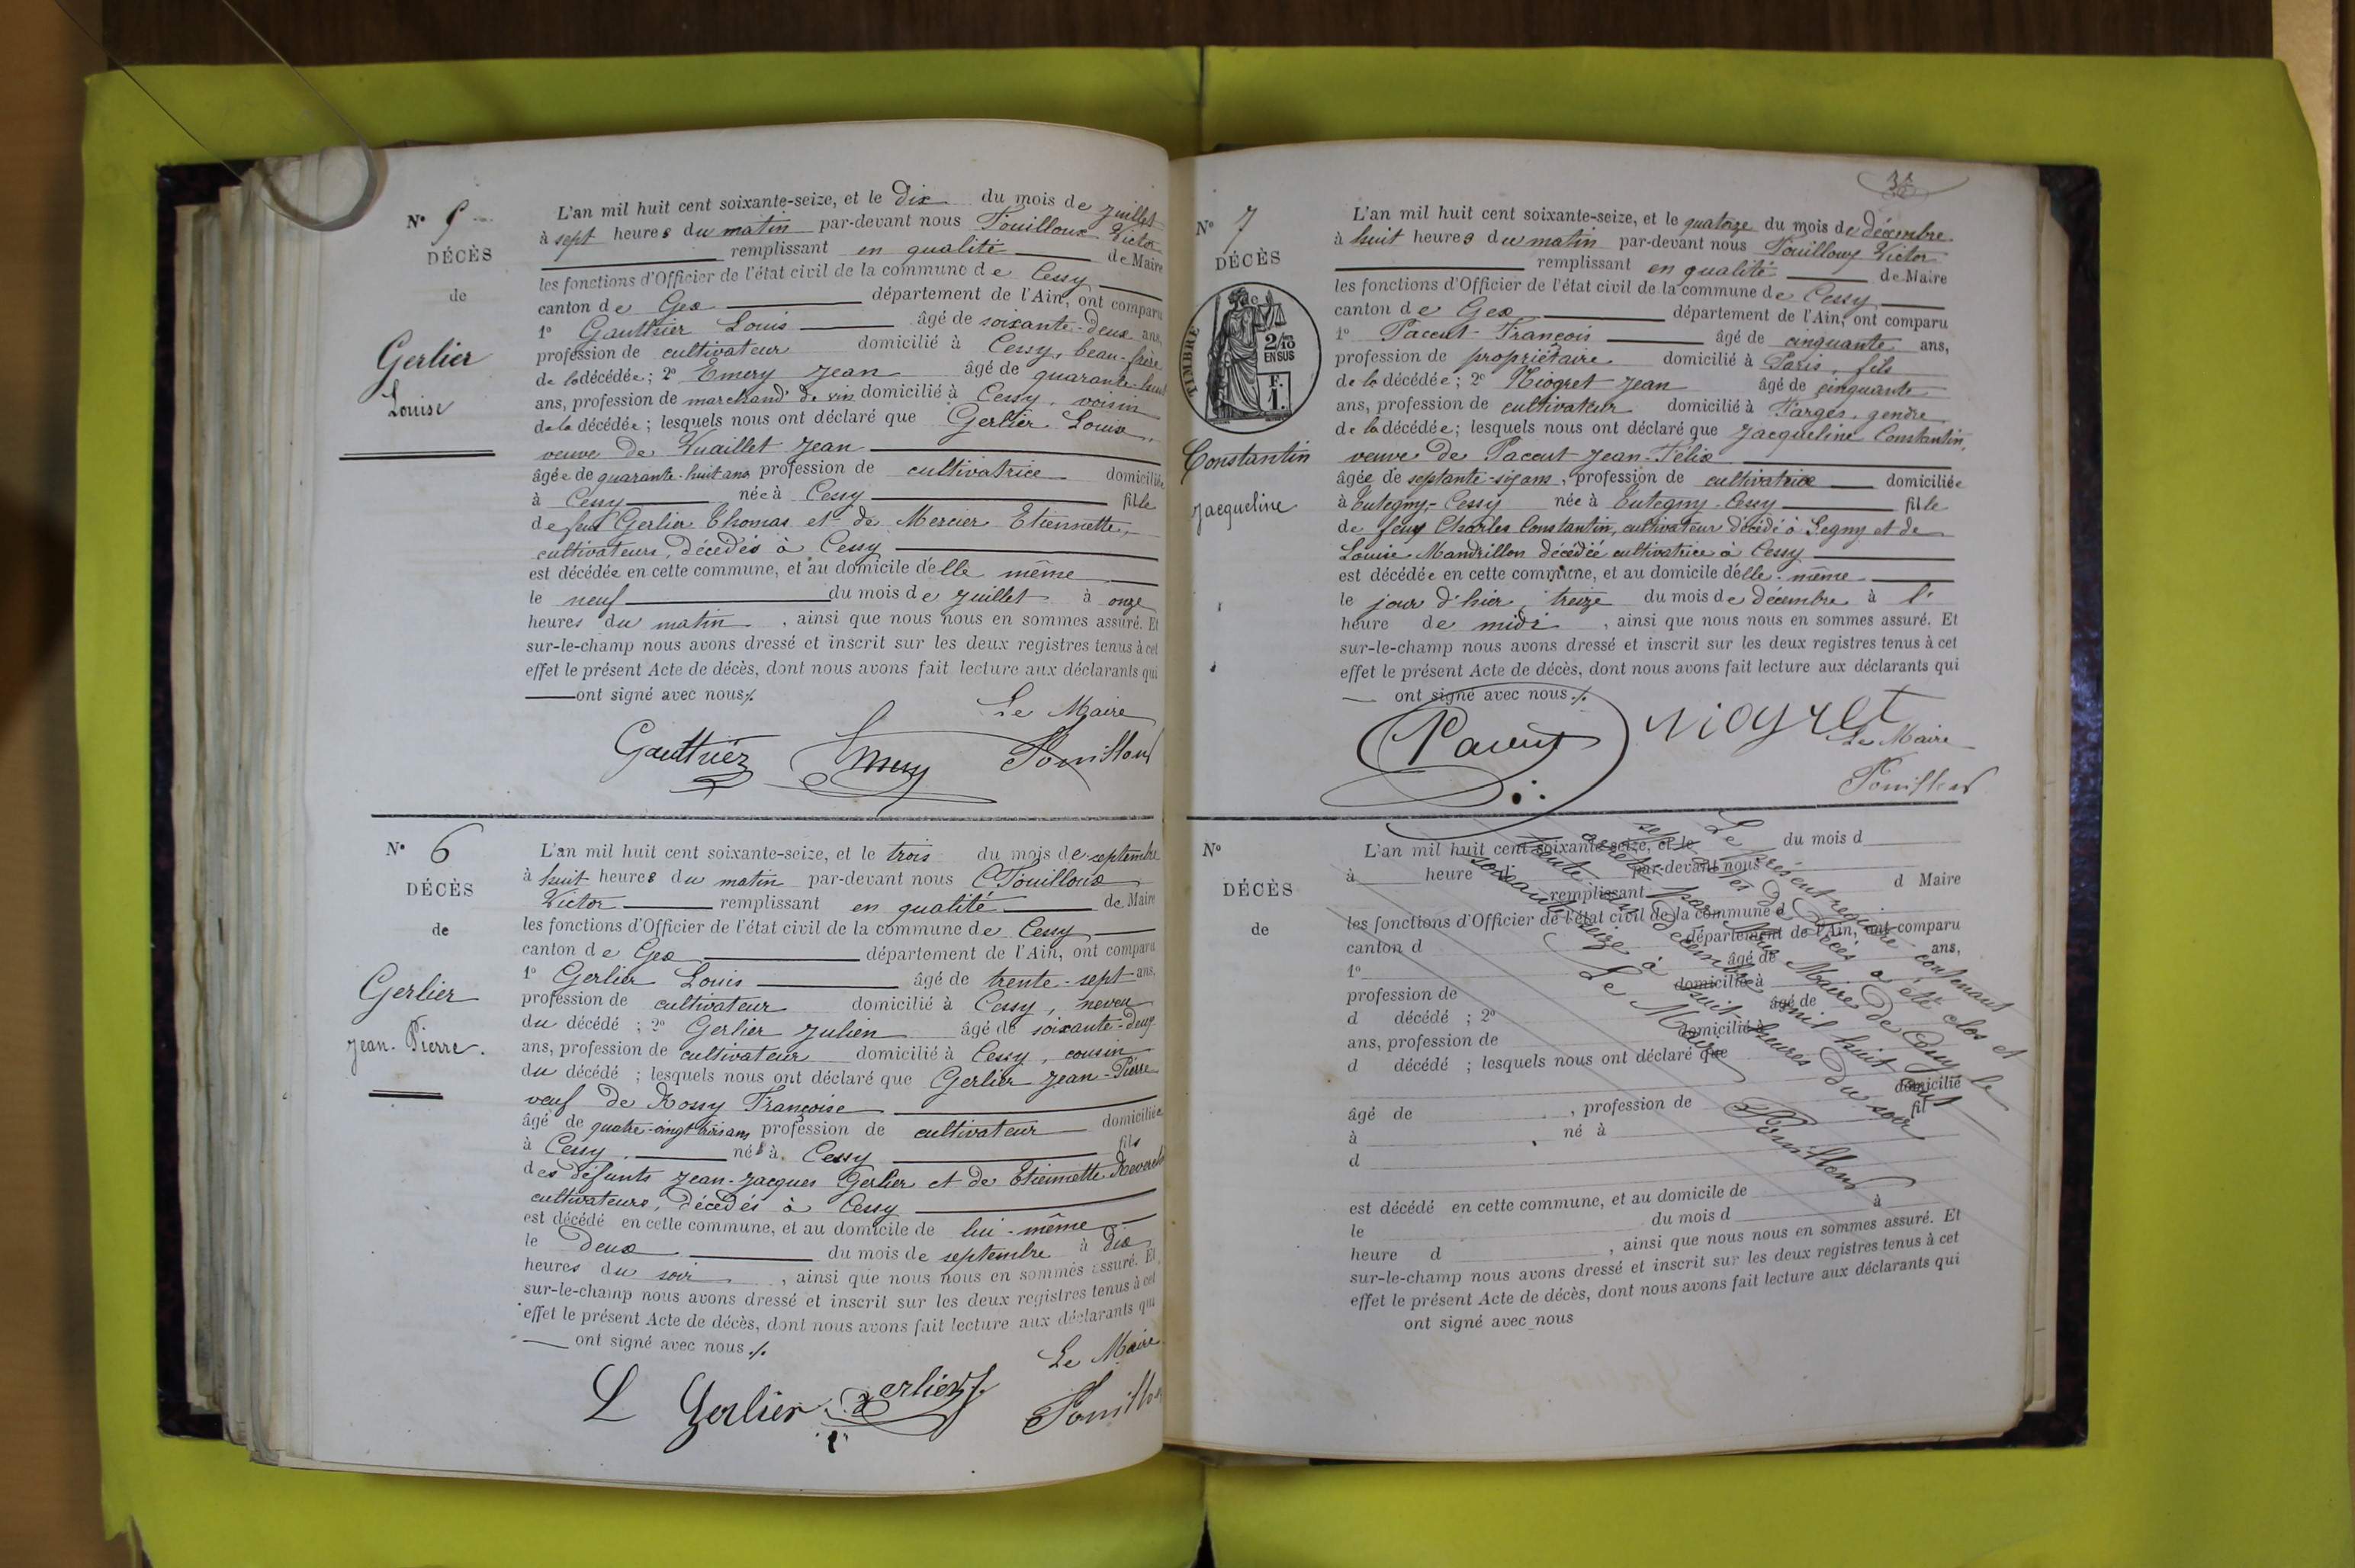 N° 5
DÉCÈS
de
Gerlier
Louise
L'an mil huit cent soixante-seize, et le Dix du mois de Juillet
à sept heures du matin par-devant nous Fouilloux Victor
remplissant en qualité de Maire
les fonctions d'Officier de l'état civil de la commune de Cessy
canton de Gex département de l'Ain, ont comparu
1° Gauthier Louis âgé de soixante-deux ans,
profession de cultivateur domicilié à Cessy, beau-frère
de la décédée; 2° Emery Jean âgé de quarante-huit
ans, profession de marchand de vin domicilié à Cessy, voisin
de la décédée; lesquels nous ont déclaré que Gerlier Louise,
veuve de Vuaillet Jean
âgée de quarante-huit ans profession de cultivatrice domiciliée
à Cessy née à Cessy fille
de feus Gerlier Thomas et de Mercier Etiennette,
cultivateurs, décédés à Cessy
est décédée en cette commune, et au domicile d'elle même
le neuf du mois de Juillet à onze
heures du matin, ainsi que nous nous en sommes assuré. Et
sur-le-champ nous avons dressé et inscrit sur les deux registres tenus à cet
effet le présent Acte de décès, dont nous avons fait lecture aux déclarants qui
ont signé avec nous ./.
Le Maire
Gauthier Emery Fouilloux
N° 6
DÉCÈS
de
Gerlier
Jean-Pierre.
L'an mil huit cent soixante-seize, et le trois du mois de septembre
à huit heures du matin par-devant nous Fouilloux
Victor remplissant en qualité de Maire
les fonctions d'Officier de l'état civil de la commune de Cessy
canton de Gex département de l'Ain, ont comparu
1° Gerlier Louis âgé de trente-sept ans,
profession de cultivateur domicilié à Cessy, neveu
du décédé; 2° Gerlier Julien âgé de soixante-deux
ans, profession de cultivateur domicilié à Cessy, cousin
du décédé; lesquels nous ont déclaré que Gerlier Jean-Pierre
veuf de Rossy Françoise
âgé de quatre-vingt trois ans profession de cultivateur domicilié
à Cessy né à Cessy fils
des défunts Jean-Jacques Gerlier et de Etiennette
cultivateurs, décédés à Cessy
est décédé en cette commune, et au domicile de lui-même
le Deux du mois de septembre à dix
heures du soir, ainsi que nous nous en sommes assuré. Et
sur-le-champ nous avons dressé et inscrit sur les deux registres tenus à cet
effet le présent Acte de décès, dont nous avons fait lecture aux déclarants qui
ont signé avec nous ./.
Le Maire
L Gerlier Gerlier Fouilloux
N° 7
DÉCÈS
TIMBRE
2/10
EN SUS
F.
1.
Constantin
Jacqueline
L'an mil huit cent soixante-seize, et le quatorze du mois de décembre
à huit heures du matin par-devant nous Fouilloux Victor
remplissant en qualité de Maire
les fonctions d'Officier de l'état civil de la commune de Cessy
canton de Gex département de l'Ain, ont comparu
1° Paccut François âgé de cinquante ans,
profession de propriétaire domicilié à Paris, fils
de la décédée; 2° Niogret Jean âgé de cinquante
ans, profession de cultivateur domicilié à Farges, gendre
de la décédée; lesquels nous ont déclaré que Jacqueline Constantin,
veuve de Paccut Jean-Félix
âgée de septante-six ans, profession de cultivatrice domiciliée
à Eutegny-Cessy née à Eutegny-Cessy fille
de feux Charles Constantin, cultivateur décédé à Segny et de
Louise Mandrillon décédée cultivatrice à Cessy
est décédée en cette commune, et au domicile d'elle-même
le jour d'hier, treize du mois de décembre à l'
heure de midi, ainsi que nous nous en sommes assuré. Et
sur-le-champ nous avons dressé et inscrit sur les deux registres tenus à cet
effet le présent Acte de décès, dont nous avons fait lecture aux déclarants qui
ont signé avec nous ./.
Paccut niogret
Le Maire
Fouilloux
N°
DÉCÈS
de
L'an mil huit cent soixante-seize, et le du mois d
à heure d par-devant nous
remplissant d Maire
les fonctions d'Officier de l'état civil de la commune d
canton d département de l'Ain, ont comparu
1° âgé de ans,
profession de domicilié à
d décédé ; 2° âgé de
ans, profession de domicilié à
d décédé ; lesquels nous ont déclaré que
âgé de , profession de domicilié
à né à fil
d
est décédé en cette commune, et au domicile de
le du mois d à
heure d , ainsi que nous nous en sommes assuré. Et
sur-le-champ nous avons dressé et inscrit sur les deux registres tenus à cet
effet le présent Acte de décès, dont nous avons fait lecture aux déclarants qui
ont signé avec nous
Le présent registre contenant
sept actes de Décès a été clos et
arrêté par Nous Maire de Cessy le
trente un Décembre mil huit cent
soixante seize à huit heures du soir
Le Maire
Fouilloux